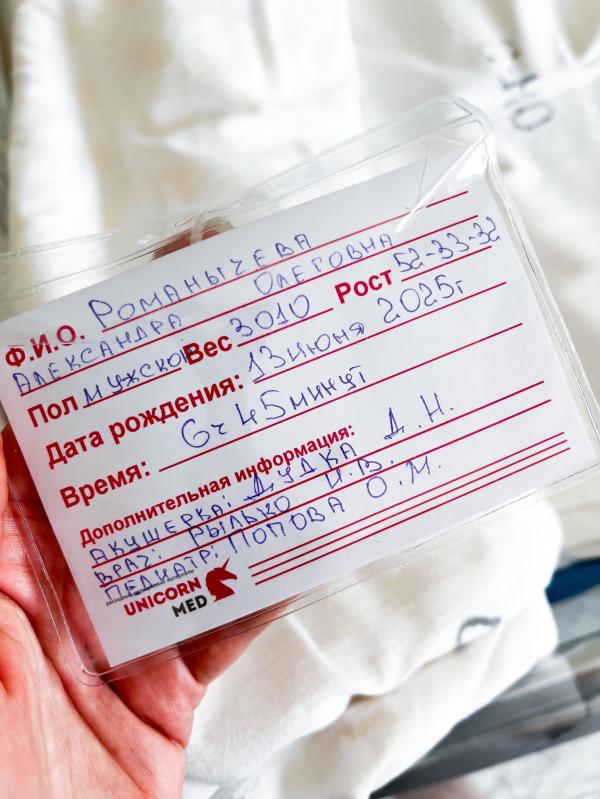 Ф.И.О. РОМАНЫЧЕВА
АЛЕКСАНДРА ОЛЕГОВНА
Пол МУЖСКОЙ Вес 3010 Рост 52-33-32
Дата рождения: 13 июня 2025г
Время: 6ч 45минут
Дополнительная информация:
АКУШЕРКА: ДУДКА Д.Н.
ВРАЧ: РЫЛЬКО И.В.
ПЕДИАТР: ПОПОВА О.М.
UNICORN
MED